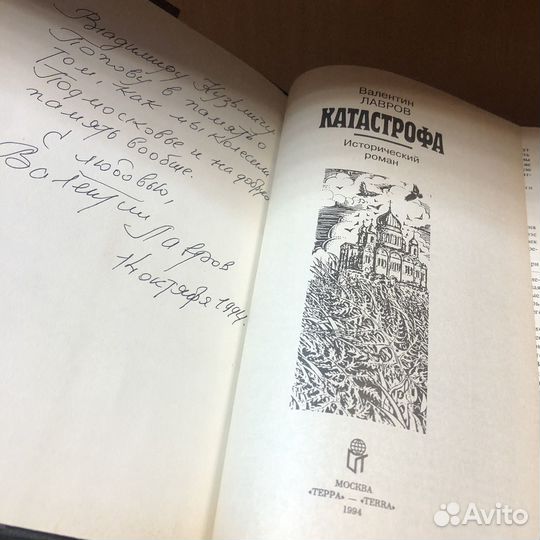 Владимиру Кузьмичу
Попову в память о
том, как мы колесили
Подмосковье и на добрую
память вообще.
С любовью,
Валентин Лавров
14 октября 1994г.
Валентин
ЛАВРОВ
КАТАСТРОФА
Исторический
роман
МОСКВА
«ТЕРРА» — «TERRA»
1994
Avito